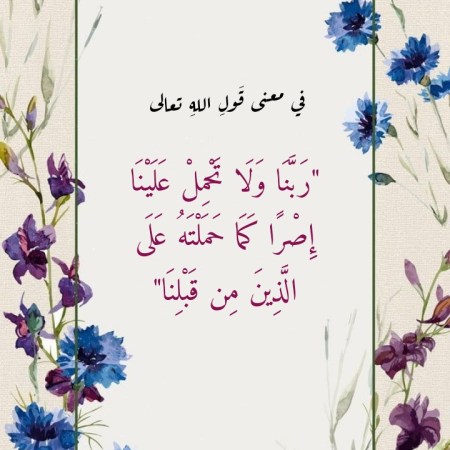 في معنى قَولِ اللهِ تعالى
"رَبَّنَا وَلَا تَحْمِلْ عَلَيْنَا
إِصْرًا كَمَا حَمَلْتَهُ عَلَى
الَّذِينَ مِن قَبْلِنَا"